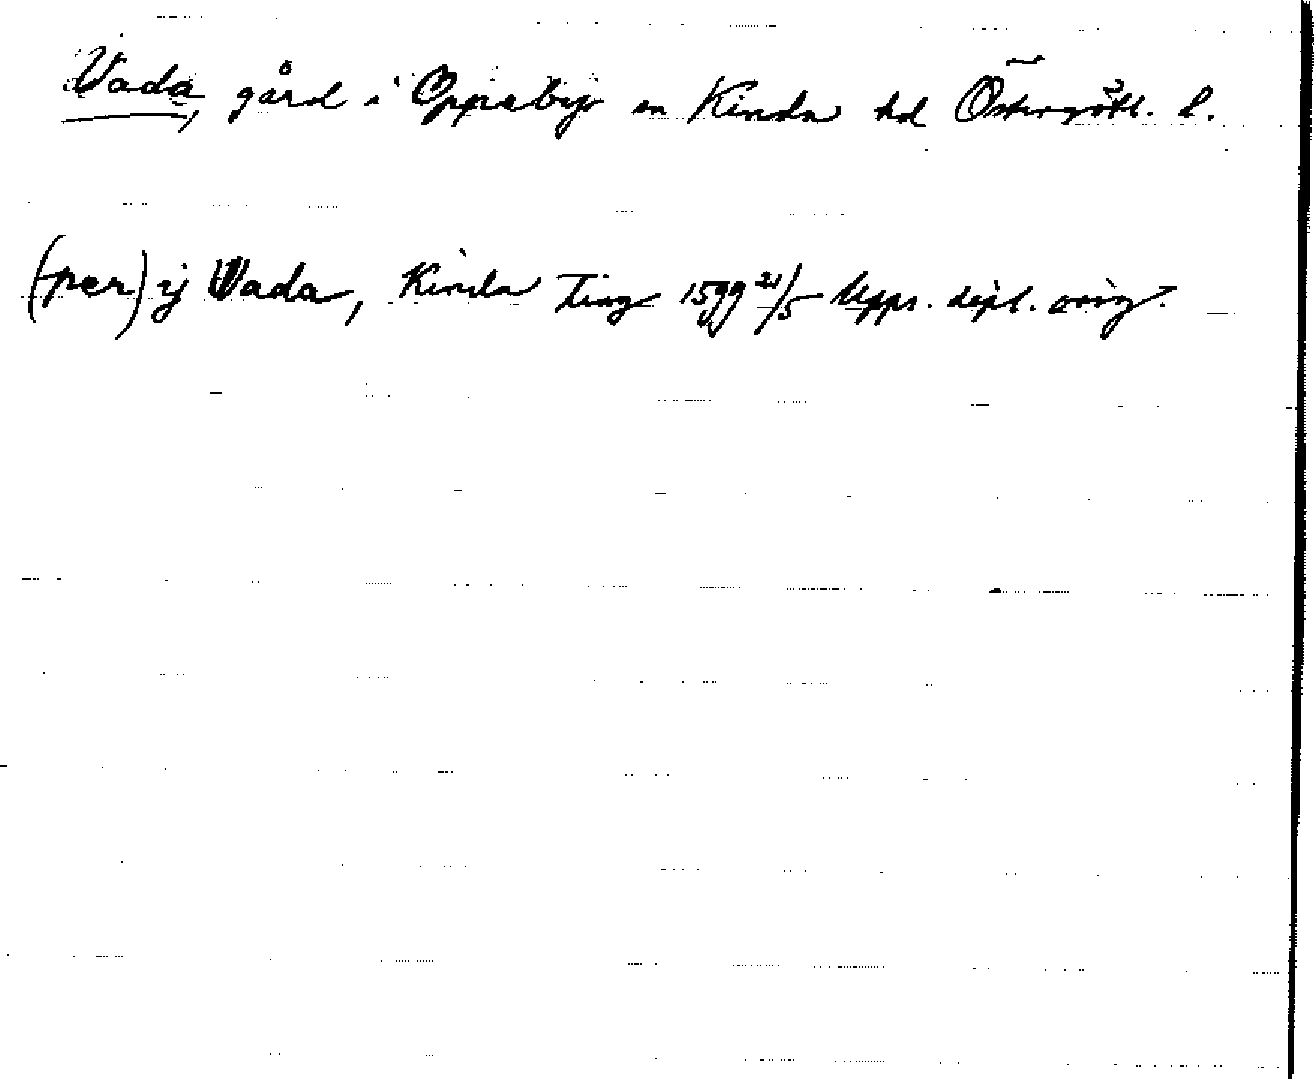 Vada, gård i Oppeby sn Kinda hd Östergötl. l.
(per) ij Vada, Kinda Ting 1599 21/5 Upps. dipl. orig.